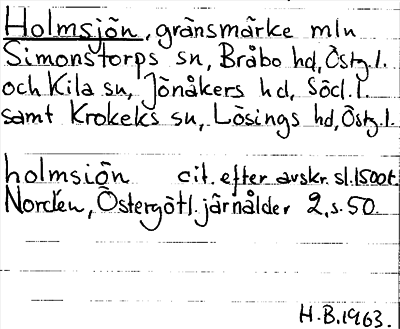 Holmsjön, gränsmärke mln
Simonstorps sn, Bråbo hd, Östg.l.
och Kila sn, Jönåkers hd, Södl.l.
samt Krokeks sn, Lösings hd, Östg.l.
holmsiön cit. efter avskr. sl.1500t.
Nordén, Östergötl. järnålder 2, s. 50.
H.B.1963.